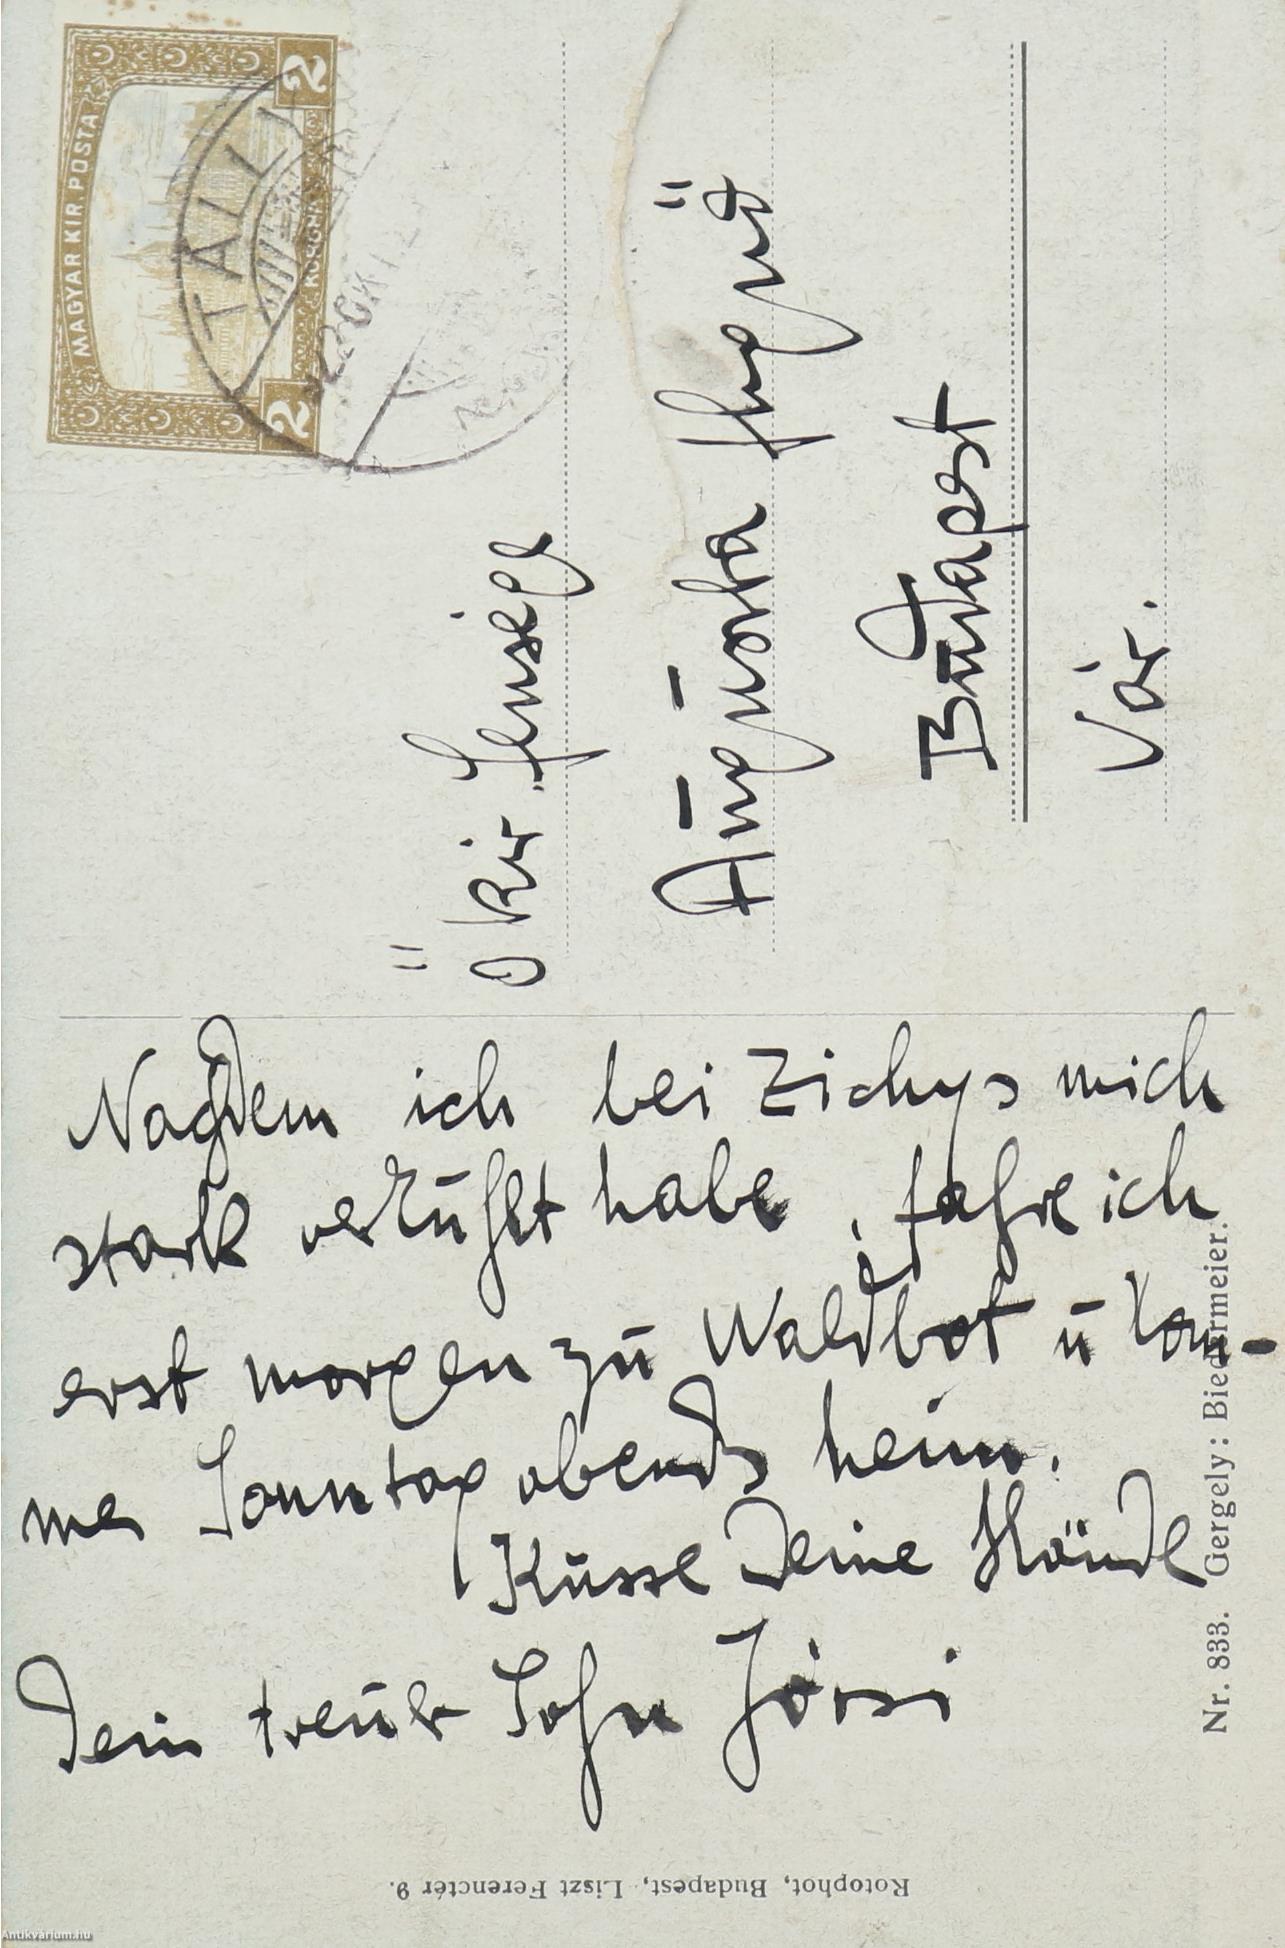 MAGYAR KIR. POSTA
2 2
KORONA
TÁLLYA
Ő kir. fensége
Augusta főhgnő
Budapest
Vár.
Nachdem ich bei Zichys mich
stark verkühlt habe, fahre ich
erst morgen zu Waldbot u kom-
me Sonntag abends heim.
Küsse Deine Hände
Dein treuer Sohn
Nr. 833. Gergely: Biedermeier.
Rotophot, Budapest, Liszt Ferenctér 9.
Antikvarium.hu